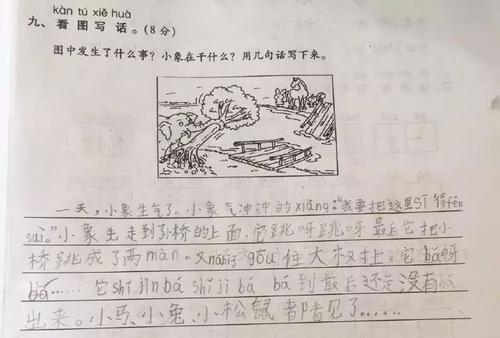 kàn tú xiě huà
九、看图写话。(8分)
图中发生了什么事?小象在干什么?用几句话写下来。
一天,小象生气了。小象气冲冲的xiǎng:“我要把这里Sī得fěn
suì。”小象先走到小桥的上面,它跳呀跳呀最后它把小
桥跳成了两màn。又 gōu住大树上,它bá呀
bá……它shǐ jìn bá shǐ jì bá bá到最后还是没有bá
出来。小马、小兔、小松鼠都看见了……